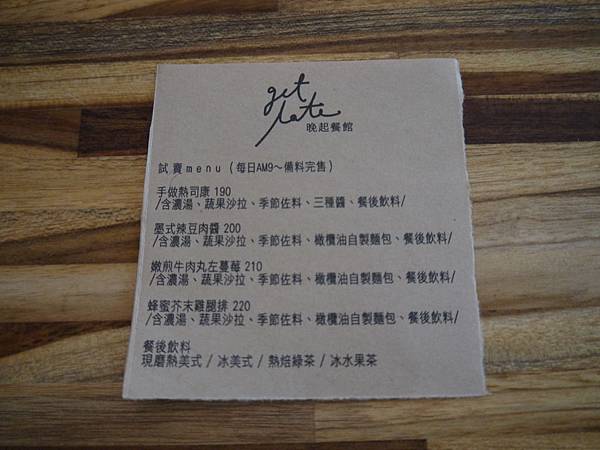 get
late
晚起餐館
試賣menu(每日AM9～備料完售)
手做熱司康 190
/含濃湯、蔬果沙拉、季節佐料、三種醬、餐後飲料/
墨式辣豆肉醬 200
/含濃湯、蔬果沙拉、季節佐料、橄欖油自製麵包、餐後飲料/
嫩煎牛肉丸左蔓莓 210
/含濃湯、蔬果沙拉、季節佐料、橄欖油自製麵包、餐後飲料/
蜂蜜芥末雞腿排 220
/含濃湯、蔬果沙拉、季節佐料、橄欖油自製麵包、餐後飲料/
餐後飲料
現磨熱美式 / 冰美式 / 熱焙綠茶 / 冰水果茶